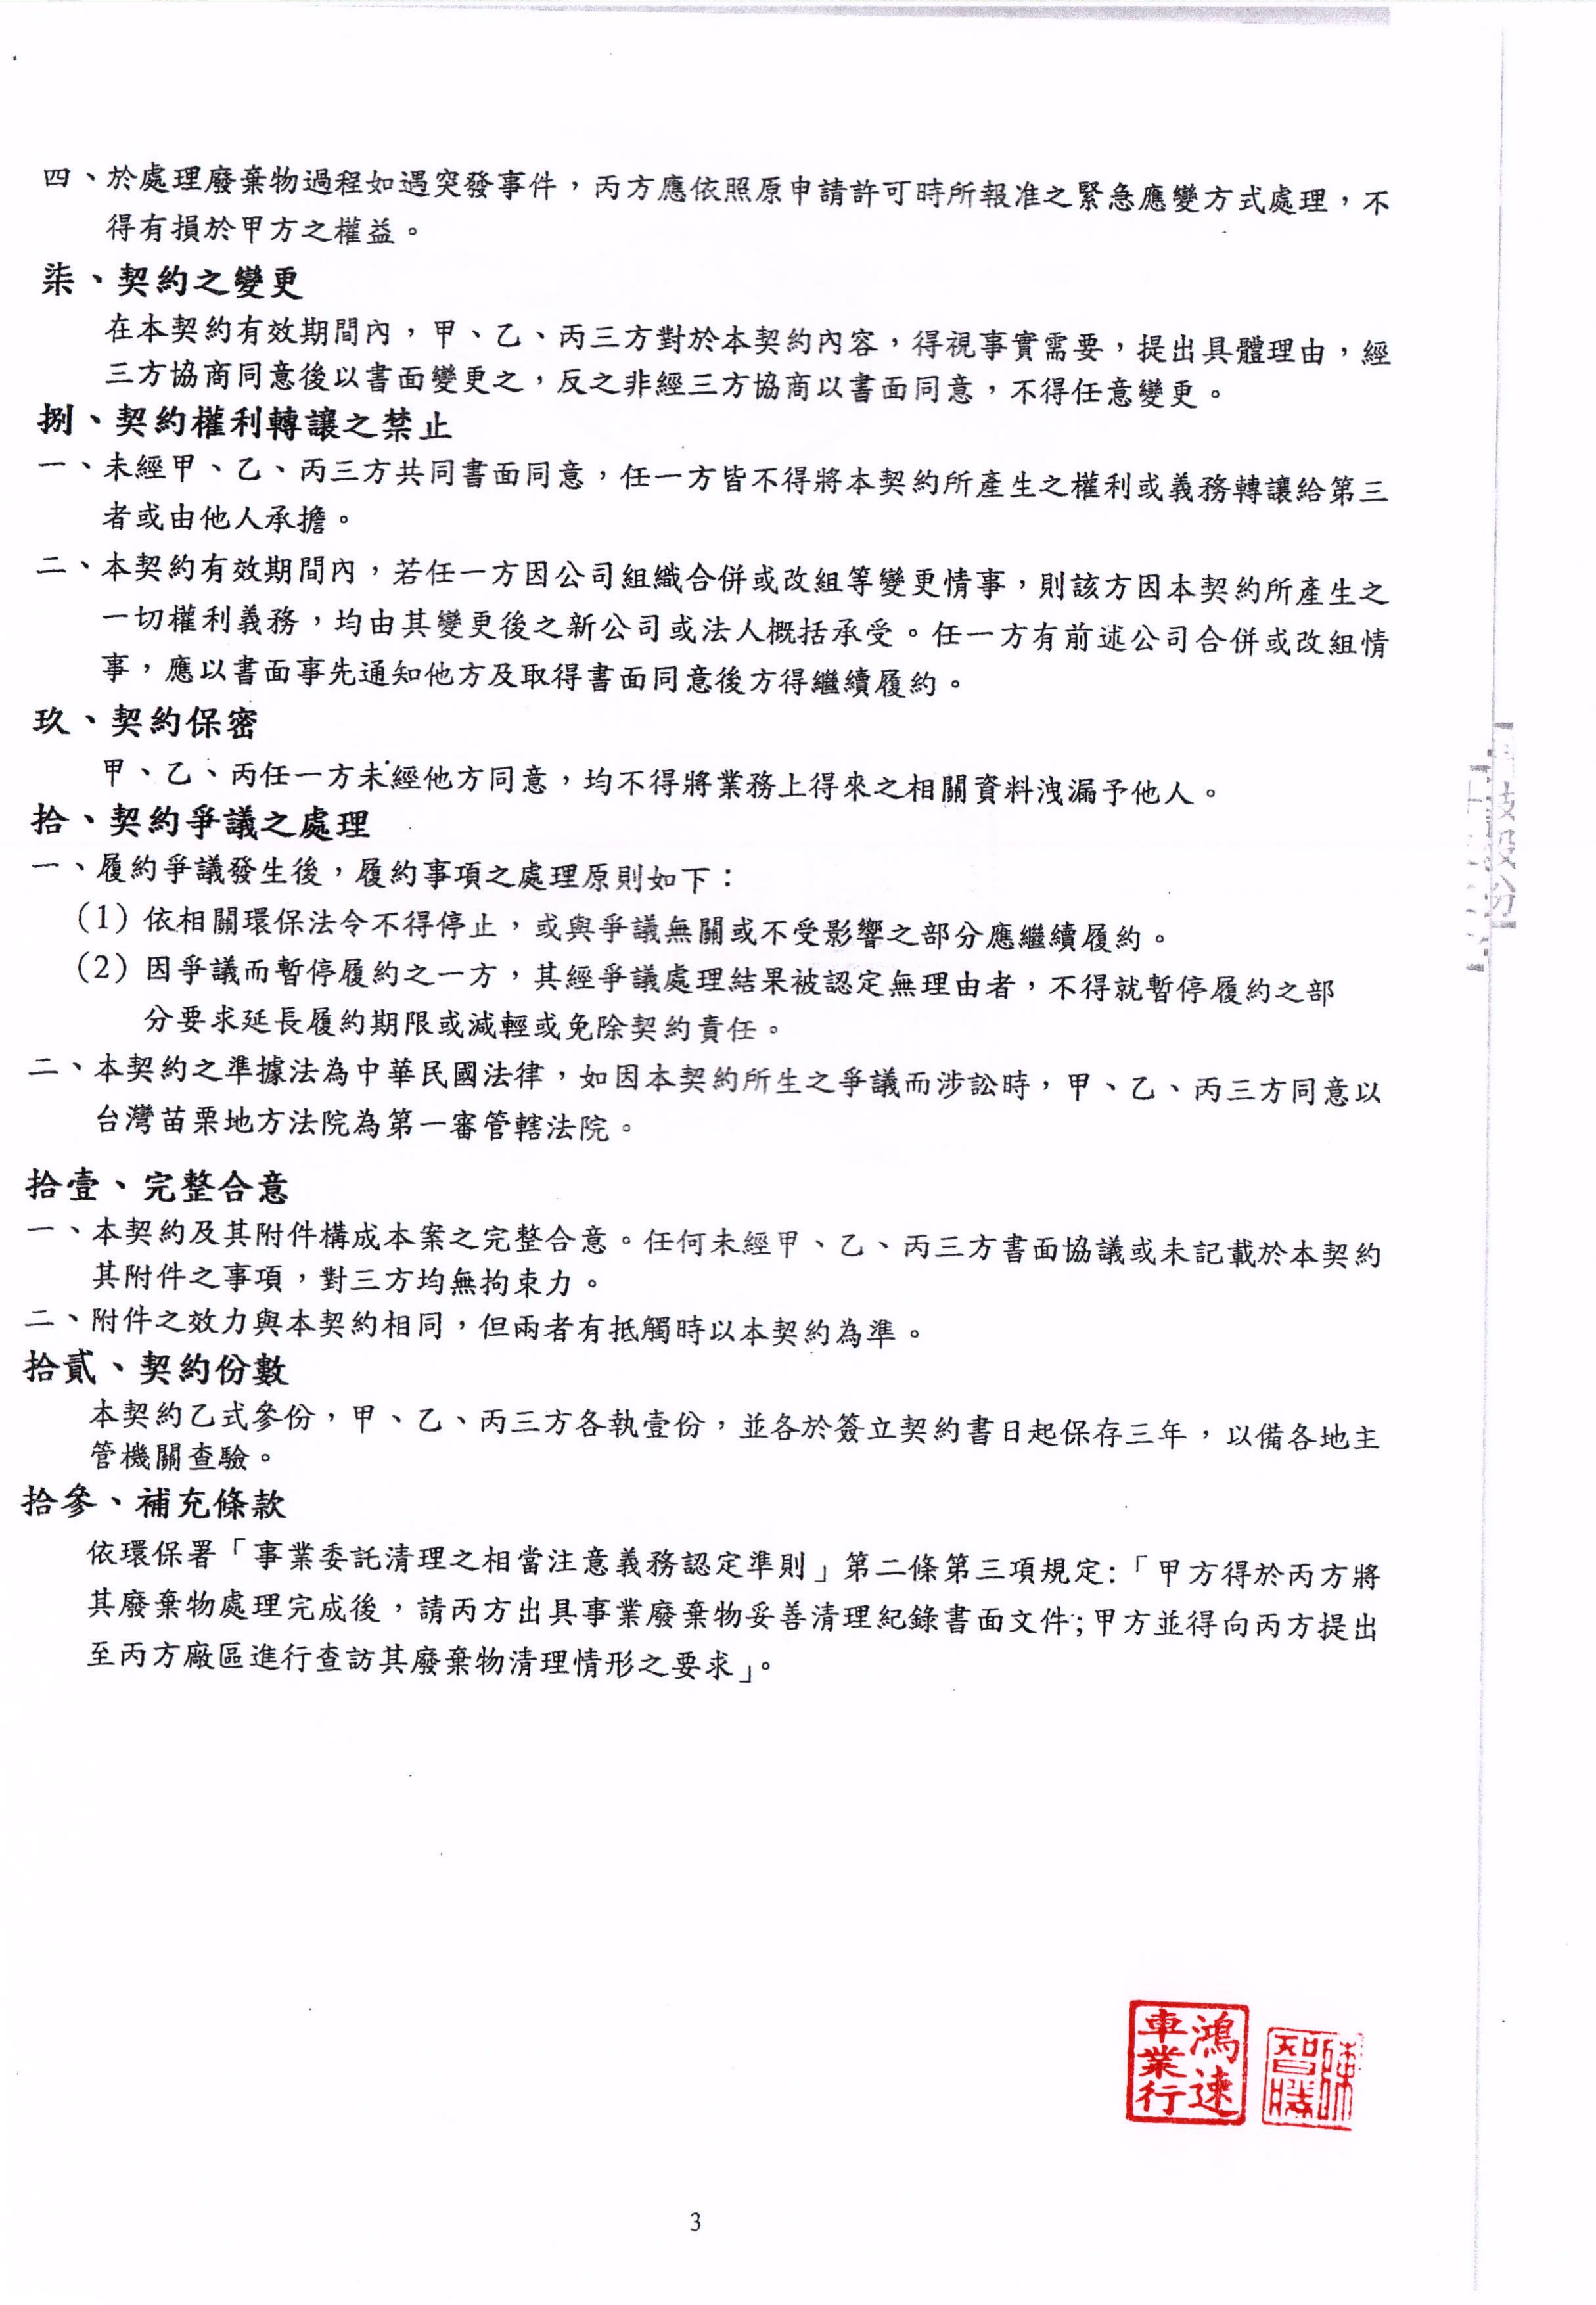 四、於處理廢棄物過程如遇突發事件，丙方應依照原申請許可時所報准之緊急應變方式處理，不
得有損於甲方之權益。
柒、契約之變更
在本契約有效期間內，甲、乙、丙三方對於本契約內容，得視事實需要，提出具體理由，經
三方協商同意後以書面變更之，反之非經三方協商以書面同意，不得任意變更。
捌、契約權利轉讓之禁止
一、未經甲、乙、丙三方共同書面同意，任一方皆不得將本契約所產生之權利或義務轉讓給第三
者或由他人承擔。
二、本契約有效期間內，若任一方因公司組織合併或改組等變更情事，則該方因本契約所產生之
一切權利義務，均由其變更後之新公司或法人概括承受。任一方有前述公司合併或改組情
事，應以書面事先通知他方及取得書面同意後方得繼續履約。
玖、契約保密
甲、乙、丙任一方未經他方同意，均不得將業務上得來之相關資料洩漏予他人。
拾、契約爭議之處理
一、履約爭議發生後，履約事項之處理原則如下：
(1) 依相關環保法令不得停止，或與爭議無關或不受影響之部分應繼續履約。
(2) 因爭議而暫停履約之一方，其經爭議處理結果被認定無理由者，不得就暫停履約之部
分要求延長履約期限或減輕或免除契約責任。
二、本契約之準據法為中華民國法律，如因本契約所生之爭議而涉訟時，甲、乙、丙三方同意以
台灣苗栗地方法院為第一審管轄法院。
拾壹、完整合意
一、本契約及其附件構成本案之完整合意。任何未經甲、乙、丙三方書面協議或未記載於本契約
其附件之事項，對三方均無拘束力。
二、附件之效力與本契約相同，但兩者有抵觸時以本契約為準。
拾貳、契約份數
本契約乙式參份，甲、乙、丙三方各執壹份，並各於簽立契約書日起保存三年，以備各地主
管機關查驗。
拾參、補充條款
依環保署「事業委託清理之相當注意義務認定準則」第二條第三項規定:「甲方得於丙方將
其廢棄物處理完成後，請丙方出具事業廢棄物妥善清理紀錄書面文件;甲方並得向丙方提出
至丙方廠區進行查訪其廢棄物清理情形之要求」。
鴻速
車業行
3